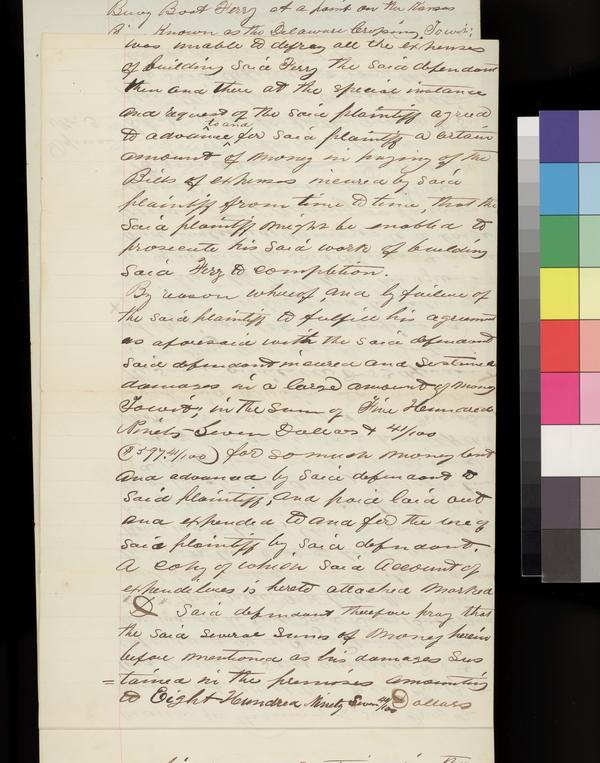 Buoy Boat Ferry at a point on the Kansas
Known as the Delaware Crossing, Towit;
was unable to defray all the expenses
of building said Ferry the said defendant
then and there at the special instance
and request of the said plaintiff agreed
to and
to advance for said plaintiff a certain
amount of money in paying of the
Bills of expenses incured by said
plaintiff from time to time, that the
said plaintiff might be enabled to
prosecute his said work of building
said Ferry to completion.
By reason whereof, and by failure of
the said plaintiff to fulfill his agreement
as aforesaid with the said defendant
said defendant incured and sustained
damages in a large amount of money
Towit; in the sum of Five Hundred
Ninety Seven Dollars & 41/100
($597.41/100) for so much money lent
and advanced by said defendant to
said plaintiff, and paid laid out
and expended to and for the use of
said plaintiff by said defendant.
A copy of which said account of
expenditures is hereto attached marked
D Said defendant therefore pray that
the said several sums of money herein
before mentioned as his damages sus
=tained in the premises amounting
to Eight Hundred Ninety Seven 41/100 Dollars